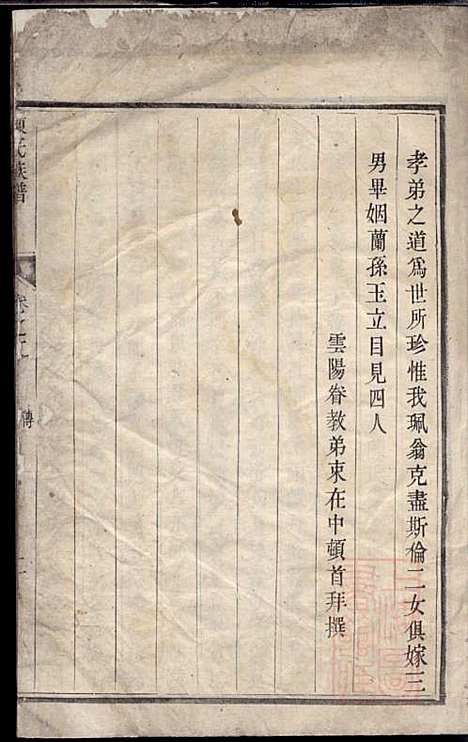 孝弟之道為世所珍惟我珮翁克盡斯倫二女俱嫁三
男畢姻蘭孫玉立目見四人
雲陽眷教弟束在中頓首拜撰
氏族譜
卷之
傳